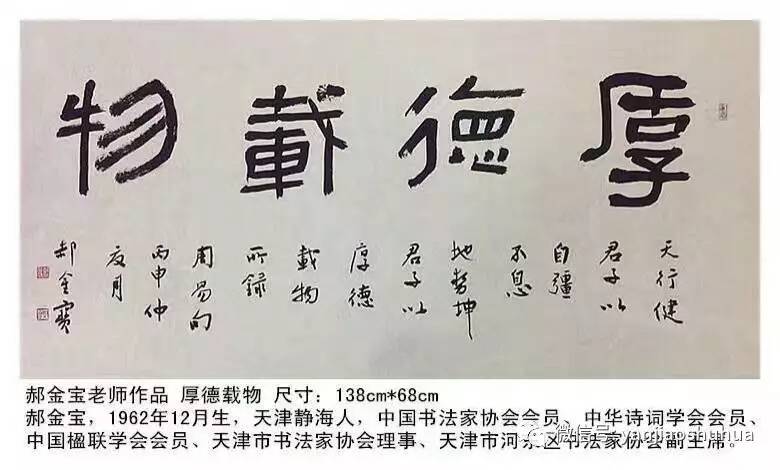 厚德載物
天行健
君子以
自彊
不息
地勢坤
君子以
厚德
載物
所録
周易句
丙申仲
夏月
郝金寶
郝金宝老师作品 厚德载物 尺寸：138cm*68cm
郝金宝，1962年12月生，天津静海人，中国书法家协会会员、中华诗词学会会员、
中国楹联学会会员、天津市书法家协会理事、天津市河东区书法家协会副主席。
微信号: